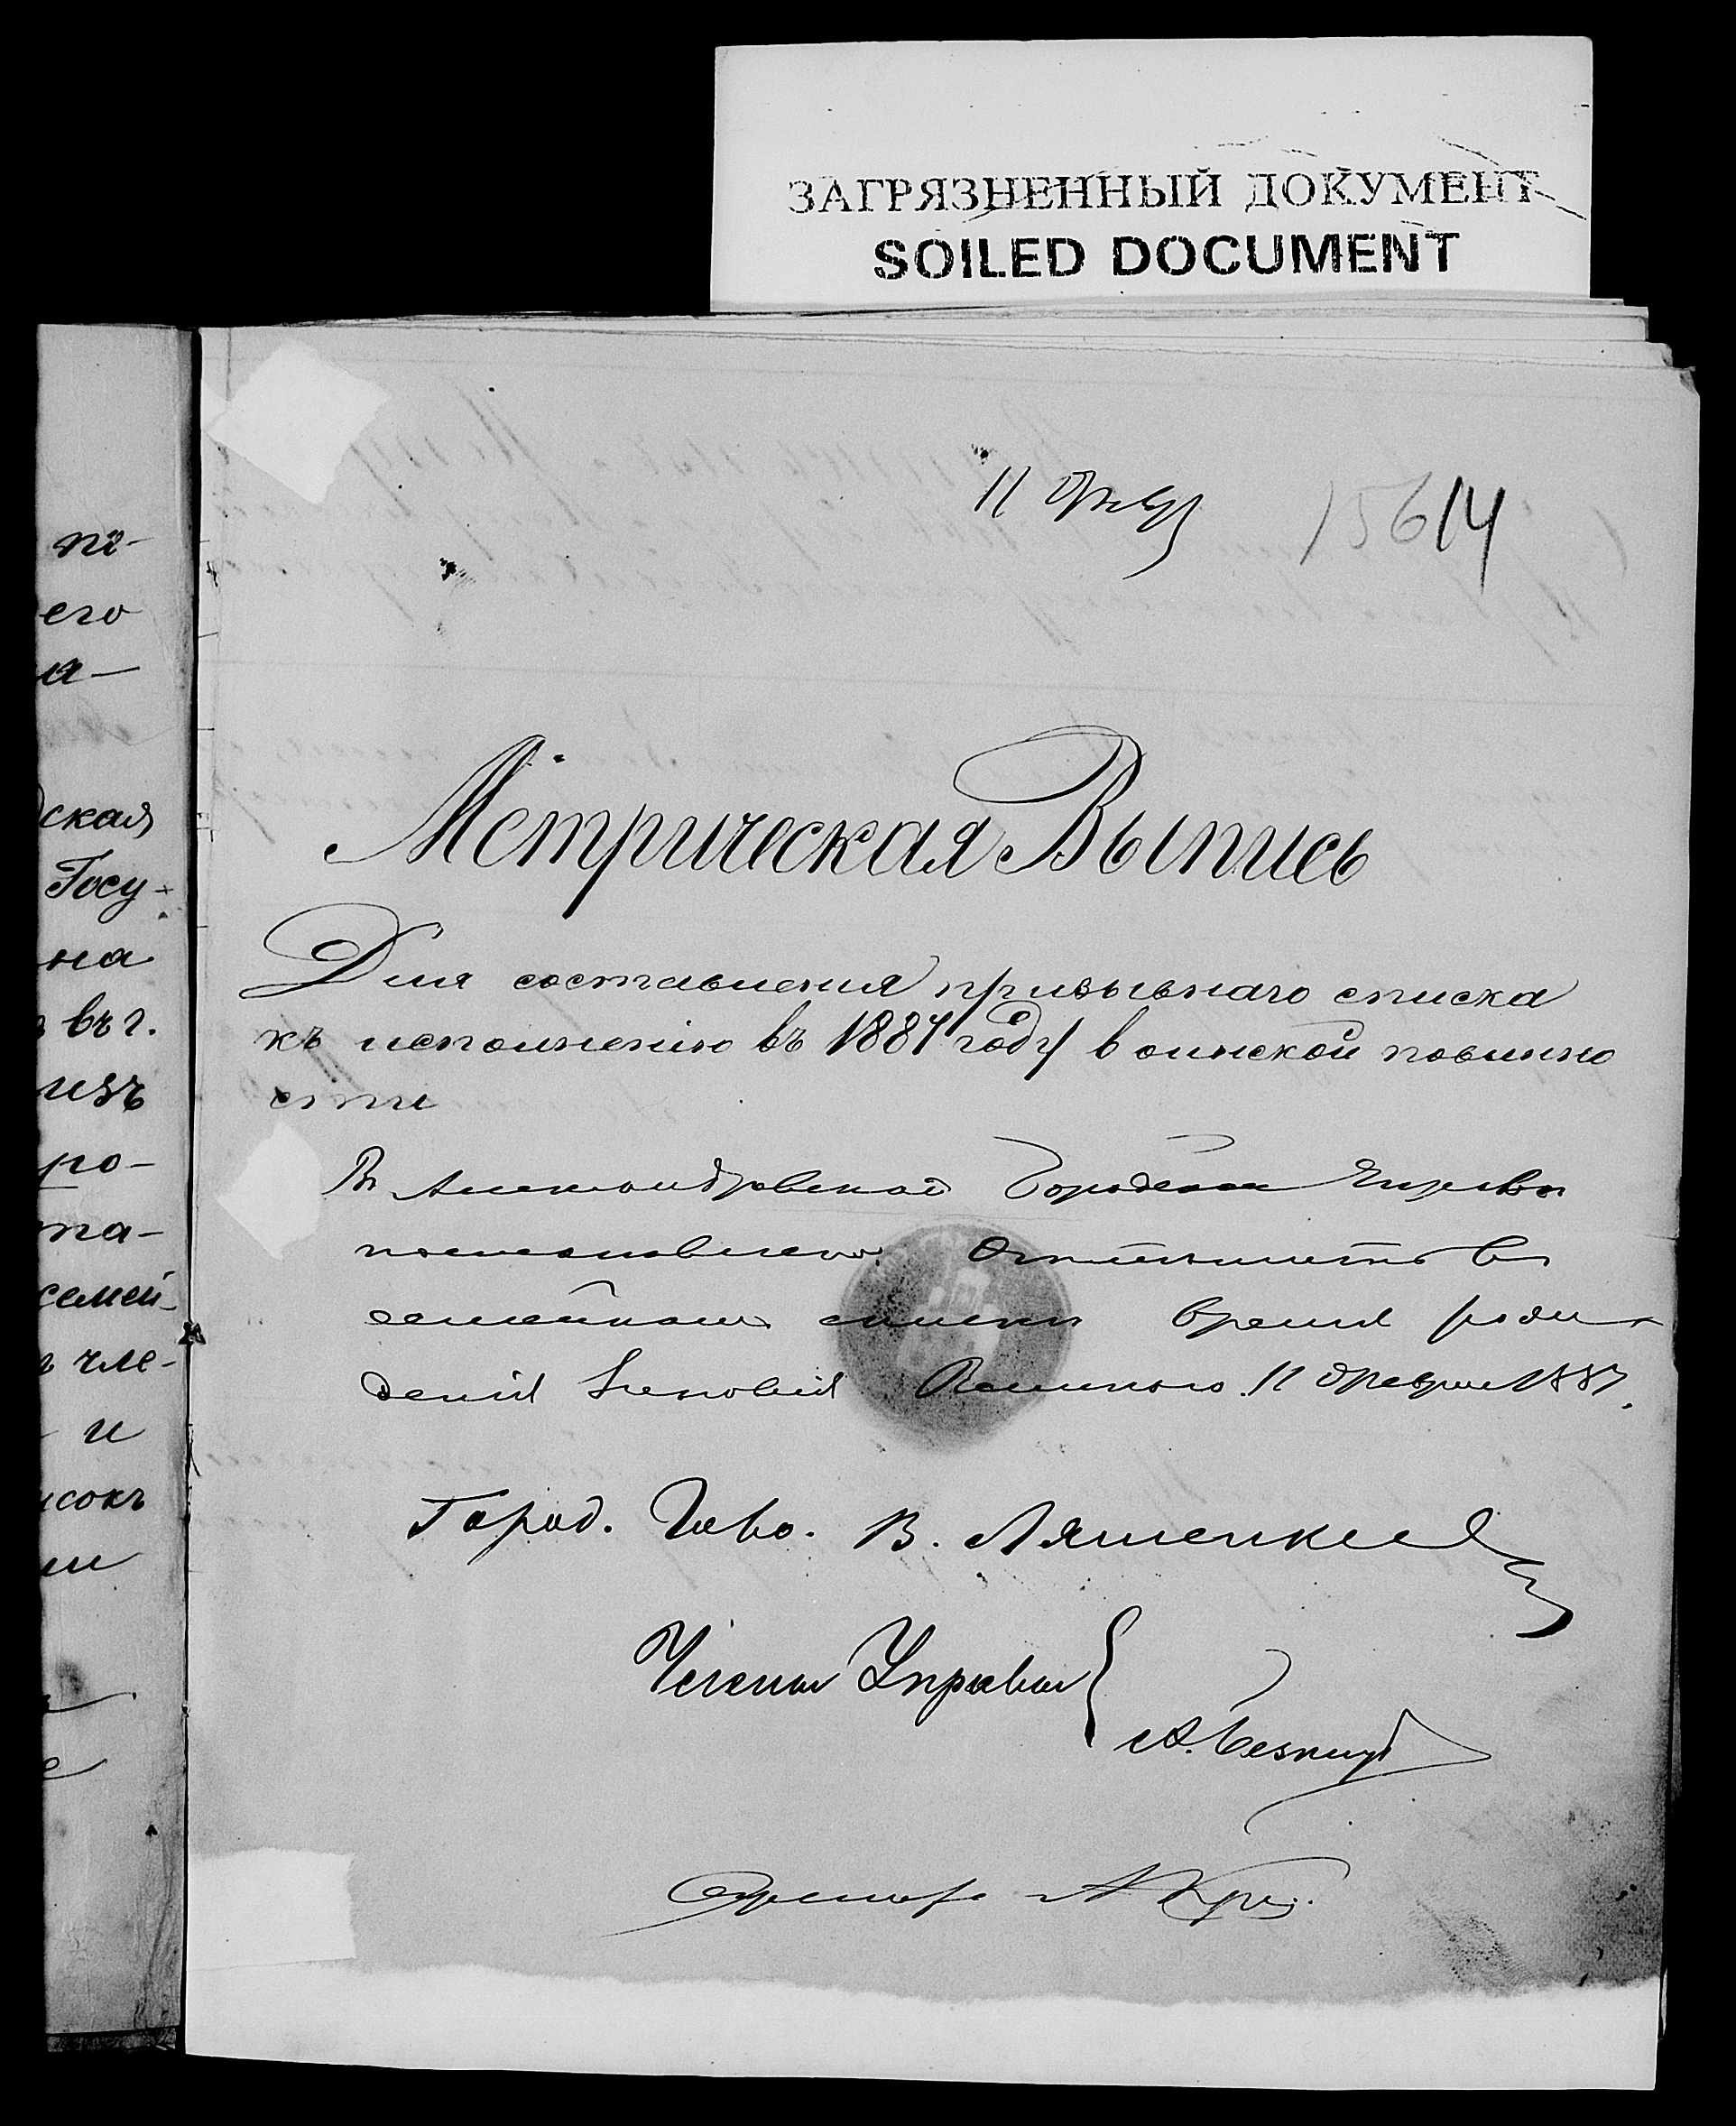 ЗАГРЯЗНЕННЫЙ ДОКУМЕНТ
SOILED DOCUMENT
11 Февр
156 14
Метрическая Выпись
Для составленія призывнаго списка
къ исполненію въ 1887 году воинской повинно
сти
Въ Александровской Городской Управѣ
постановлено: Отмѣтить въ
семейномъ спискѣ время рож
денія 11 Февраля 1887.
Город. Голова В. Ляшенко
Члены Управы
А.
Секретарь А
по-
его
а-
ская
Госу-
на
въ г.
изъ
ро-
та-
семей-
чле-
и
исокъ